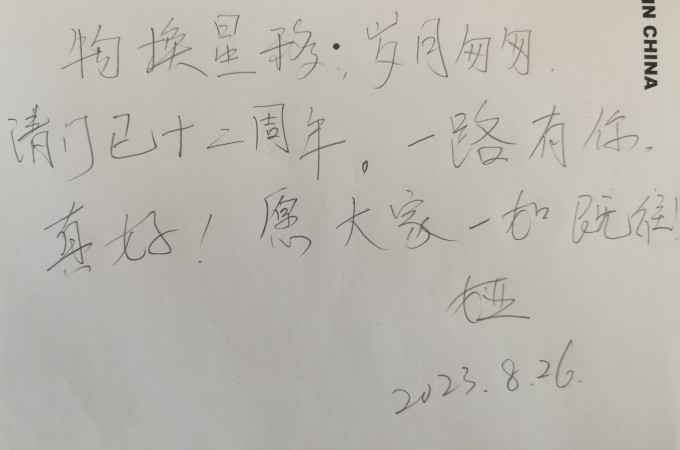 物换星移·,岁月匆匆.
清门已十二周年。一路有你.
真好!愿大家一如既往!
娅
2023.8.26.
IN CHINA